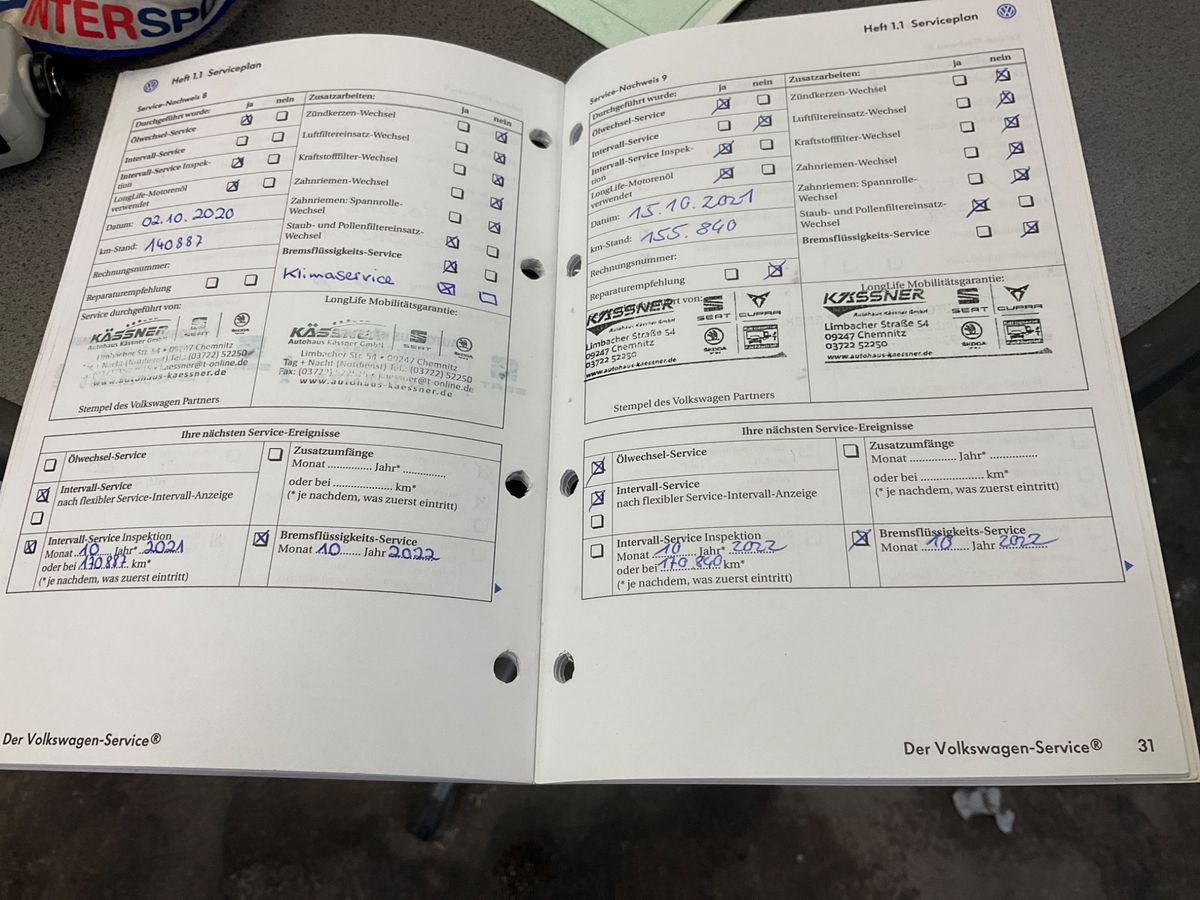 INTERSPO
Heft 1.1 Serviceplan
Service-Nachweis 8
Durchgeführt wurde: ja nein
Ölwechsel-Service
Intervall-Service
Intervall-Service Inspek-
tion
LongLife-Motorenöl
verwendet
Datum: 02.10.2020
km-Stand: 140887
Rechnungsnummer:
Reparaturempfehlung
Service durchgeführt von:
KÄSSNER SEAT ŠKODA
Autohaus Kässner GmbH
Limbacher Str. 54 • 09247 Chemnitz
www.autohaus-kaessner.de
Stempel des Volkswagen Partners
Zusatzarbeiten: ja nein
Zündkerzen-Wechsel
Luftfiltereinsatz-Wechsel
Kraftstofffilter-Wechsel
Zahnriemen-Wechsel
Zahnriemen: Spannrolle-
Wechsel
Staub- und Pollenfiltereinsatz-
Wechsel
Bremsflüssigkeits-Service
Klimaservice
LongLife Mobilitätsgarantie:
KÄSSNER SEAT ŠKODA
Autohaus Kässner GmbH
Limbacher Str. 54 • 09247 Chemnitz
Tag + Nacht (Notdienst) Tel.: (03722) 52250
www.autohaus-kaessner.de
Ihre nächsten Service-Ereignisse
Ölwechsel-Service
Intervall-Service
nach flexibler Service-Intervall-Anzeige
Intervall-Service Inspektion
Monat 10 Jahr* 2021
oder bei 170.887 km*
(* je nachdem, was zuerst eintritt)
Zusatzumfänge
Monat ............... Jahr* ...............
oder bei ............... km*
(* je nachdem, was zuerst eintritt)
Bremsflüssigkeits-Service
Monat 10 Jahr 2022
Der Volkswagen-Service®
Heft 1.1 Serviceplan
Service-Nachweis 9
Durchgeführt wurde: ja nein
Ölwechsel-Service
Intervall-Service
Intervall-Service Inspek-
tion
LongLife-Motorenöl
verwendet
Datum: 15.10.2021
km-Stand: 155.840
Rechnungsnummer:
Reparaturempfehlung
KÄSSNER SEAT CUPRA
Autohaus Kässner GmbH
Limbacher Straße 54
09247 Chemnitz ŠKODA
03722 52250
www.autohaus-kaessner.de
Stempel des Volkswagen Partners
Zusatzarbeiten: ja nein
Zündkerzen-Wechsel
Luftfiltereinsatz-Wechsel
Kraftstofffilter-Wechsel
Zahnriemen-Wechsel
Zahnriemen: Spannrolle-
Wechsel
Staub- und Pollenfiltereinsatz-
Wechsel
Bremsflüssigkeits-Service
LongLife Mobilitätsgarantie:
KÄSSNER SEAT CUPRA
Autohaus Kässner GmbH
Limbacher Straße 54
09247 Chemnitz ŠKODA
03722 52250
www.autohaus-kaessner.de
Ihre nächsten Service-Ereignisse
Ölwechsel-Service
Intervall-Service
nach flexibler Service-Intervall-Anzeige
Intervall-Service Inspektion
Monat 10 Jahr* 2022
oder bei 170 840 km*
(* je nachdem, was zuerst eintritt)
Zusatzumfänge
Monat ............... Jahr* ...............
oder bei ............... km*
(* je nachdem, was zuerst eintritt)
Bremsflüssigkeits-Service
Monat 10 Jahr 2022
Der Volkswagen-Service® 31